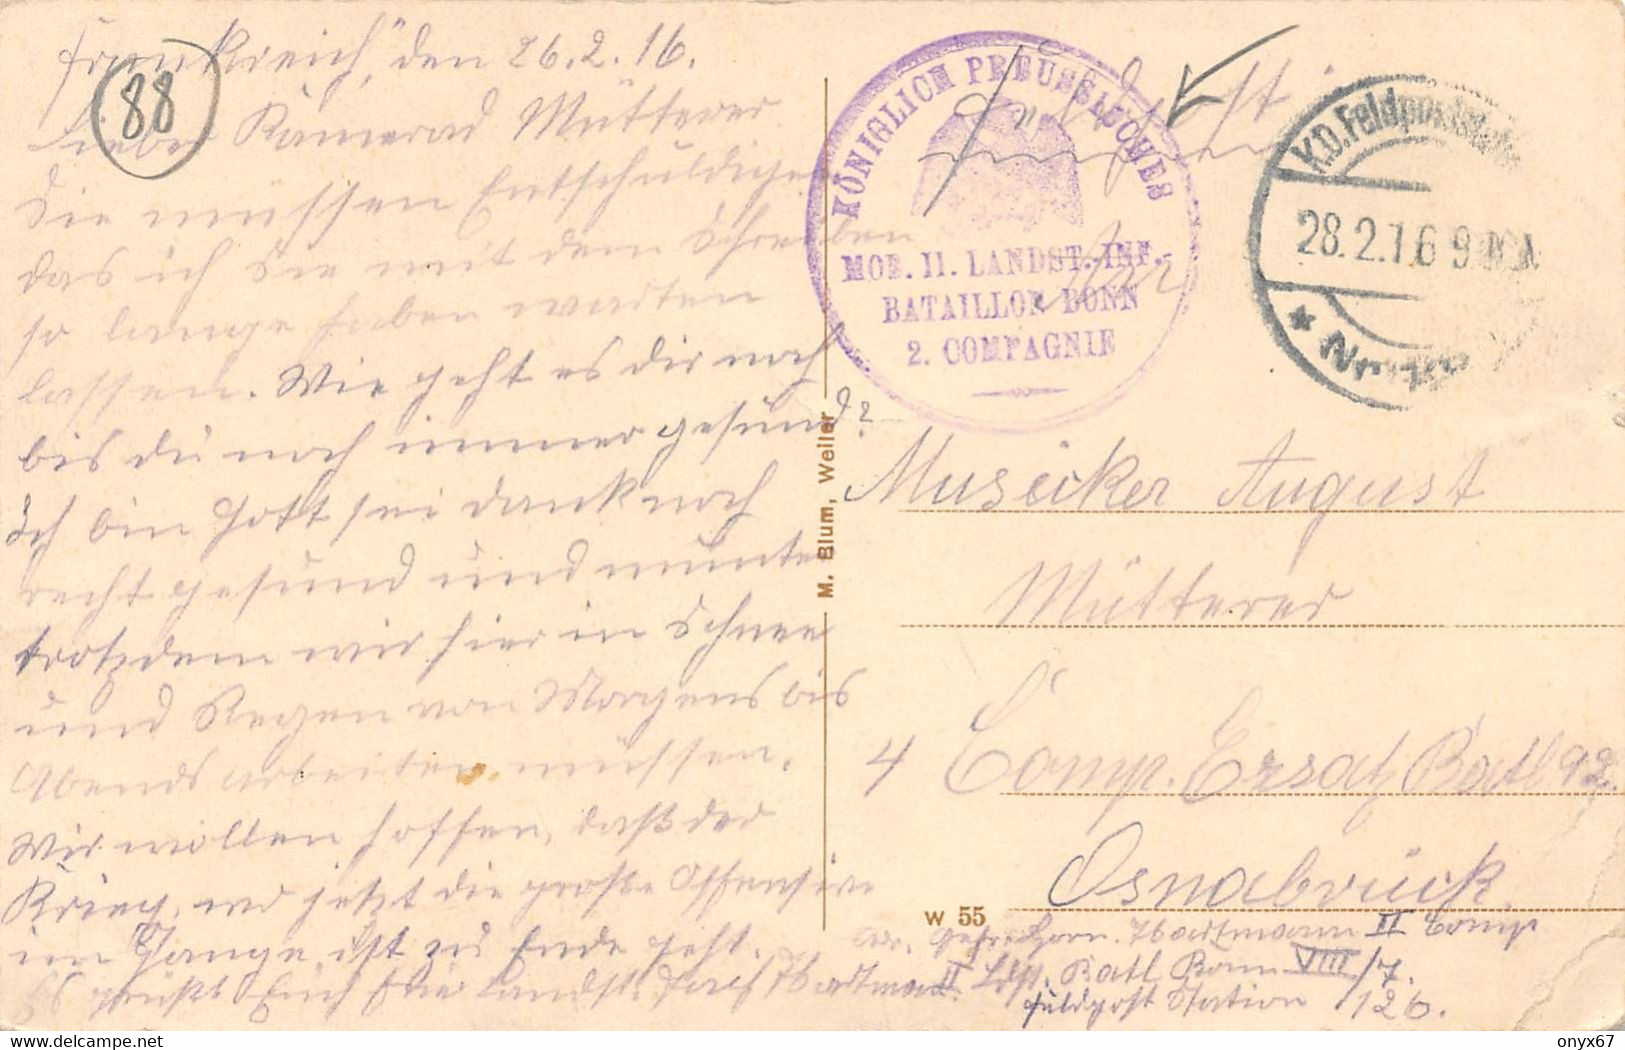 Frankreich, den 26.2.16.
88
Lieber Kamerad Mütterer
Sie müssen Entschuldigen
das ich Sie mit dem Schreiben
so lange haben warten
lassen. Wie geht es dir noch
bis du noch immer gesund?
Ich bin Gott sei dank noch
recht gesund und munter
trotzdem wir hier in Schnee
und Regen von Morgens bis
Abends arbeiten müssen.
Wir wollen hoffen, daß der
Krieg, wo jetzt die große Offensive
im Gange ist zu Ende geht.
Es grüßt Euch Landst. Hartmann
M. Blum, Weiler
W 55
Feldpost
KÖNIGLICH PREUSSISCHES
MOB. II. LANDST.-INF.-
BATAILLON BONN
2. COMPAGNIE
K.D. Feldpoststation
28.2.16 9
Musiker August
Mütterer
4 Comp. Ersatz Batl 92.
Osnabrück
Gefr. Horn. Hartmann II Comp
II Ldst. Batl Bonn VIII/7.
Feldpost Station 126.
Watermark on www.delcampe.net
onyx67